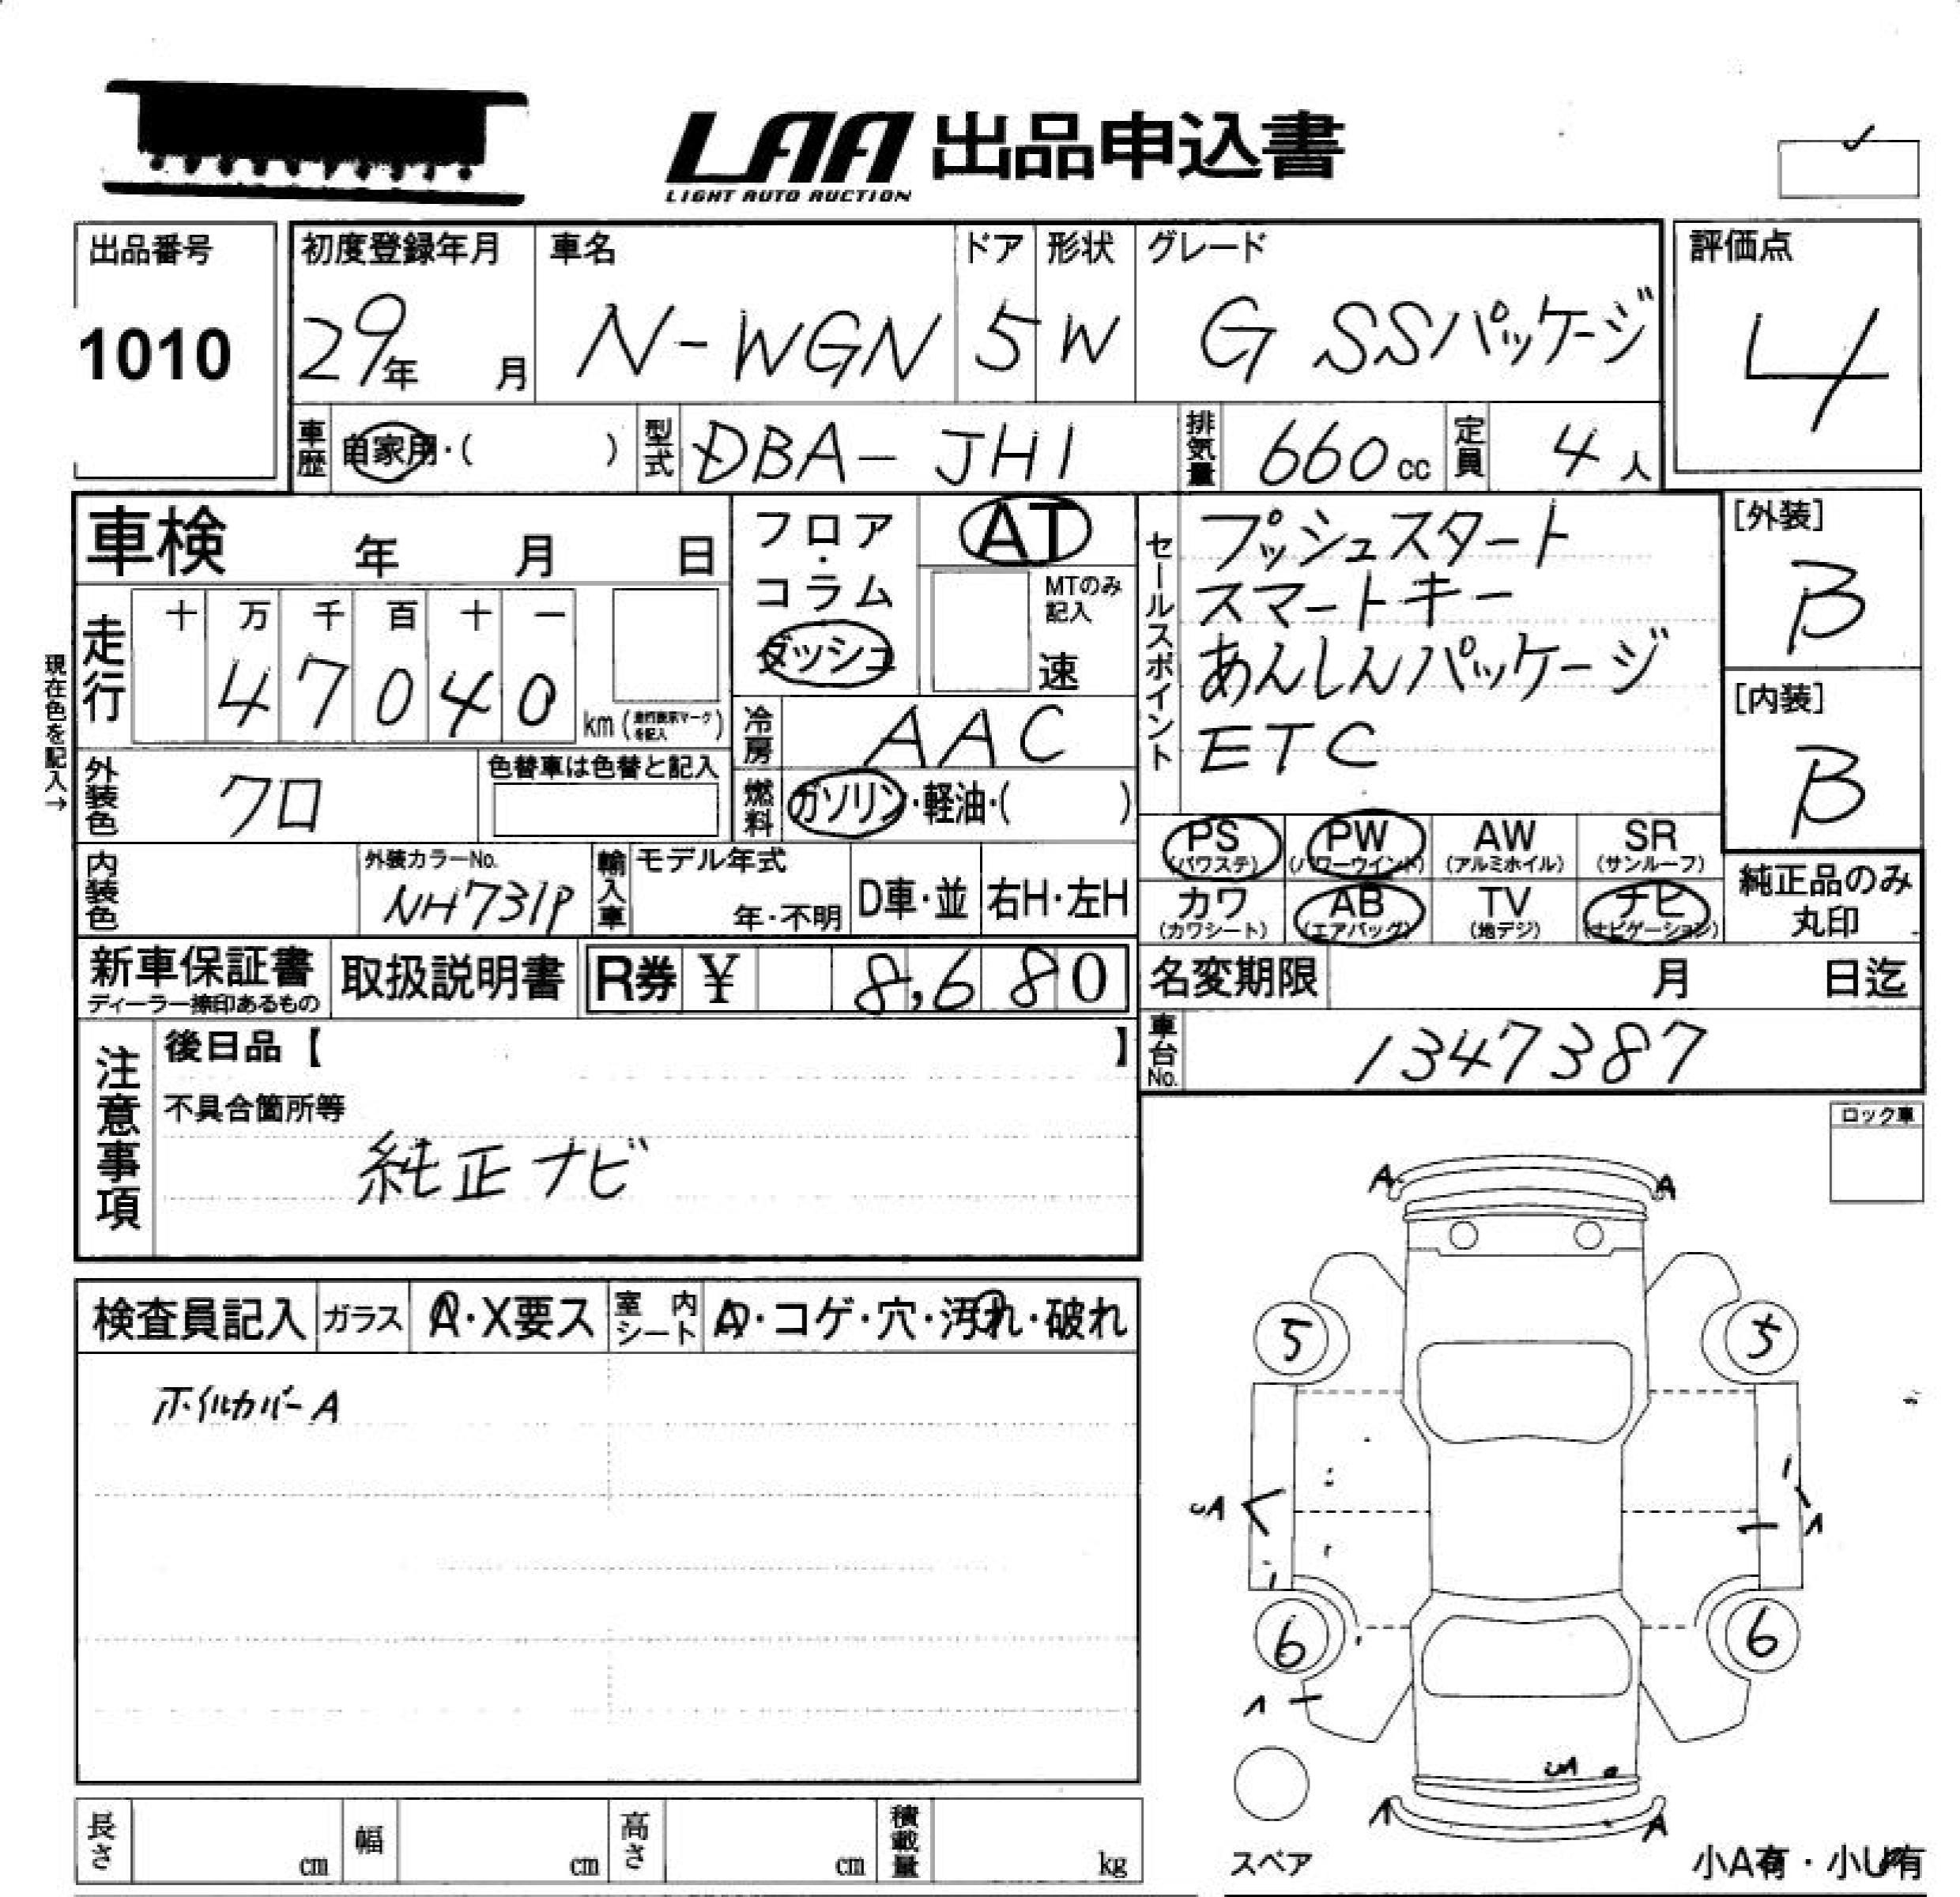 LAA 出品申込書
LIGHT AUTO AUCTION
出品番号
1010
初度登録年月
29年 月
車名
N-WGN
ドア
5
形状
W
グレード
G SSパッケージ
評価点
4
車歴 自家用・( )
型式 DBA-JH1
排気量 660cc
定員 4人
車検 年 月 日
フロア・コラム
ダッシュ
AT
MTのみ記入
速
セールスポイント
プッシュスタート
スマートキー
あんしんパッケージ
ETC
[外装]
B
[内装]
B
現在色を記入→
走行 十 万 千 百 十 一
47040 km
冷房 AAC
外装色 クロ
色替車は色替と記入
燃料 ガソリン・軽油・( )
PS (パワステ) PW (パワーウインド) AW (アルミホイル) SR (サンルーフ)
カワ (カワシート) AB (エアバッグ) TV (地デジ) ナビ (ナビゲーション)
純正品のみ丸印
内装色
外装カラーNo.
NH731P
輸入車 モデル年式
年・不明 D車・並 右H・左H
新車保証書
ディーラー捺印あるもの
取扱説明書
R券 ¥ 8,680
名変期限 月 日迄
車台No. 1347387
注意事項
後日品【 】
不具合箇所等
純正ナビ
ロック車
検査員記入 ガラス A・X要ス 室内シート A・コゲ・穴・汚れ・破れ
ホイルカバーA
A A
5 5
A
6 6
A A
スペア
小A有・小U有
長さ cm 幅 cm 高さ cm 積載量 kg